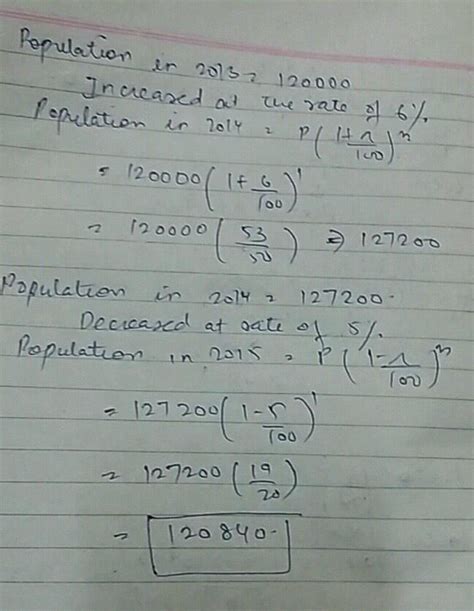 Population in 2013 = 120000
Increased at the rate of 6%.
Population in 2014 = P(1+r/100)^n
= 120000(1+6/100)^1
= 120000(53/50) ⇒ 127200
Population in 2014 = 127200.
Decreased at rate of 5%.
Population in 2015 = P(1-r/100)^n
= 127200(1-5/100)^1
= 127200(19/20)
= 120840.